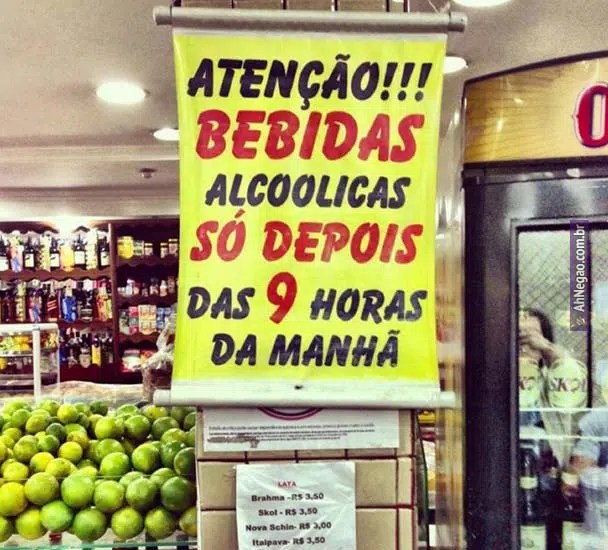 ATENÇÃO!!!
BEBIDAS
ALCOOLICAS
SÓ DEPOIS
DAS 9 HORAS
DA MANHÃ
LATA
Brahma -R$ 3,50
Skol - R$ 3,50
Nova Schin- R$ 3,00
Itaipava- R$ 3,50
SKOL
AhNegao.com.br